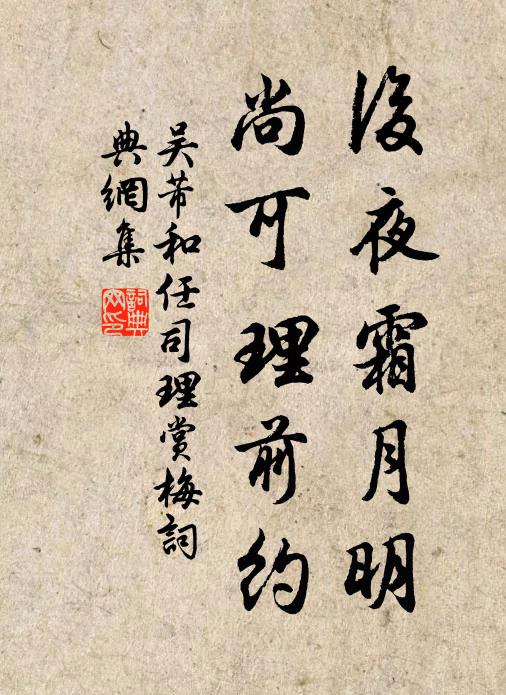 後夜霜月明
尚可理前約
吳芾和任司理賞梅詞
典網集
詞典
网印